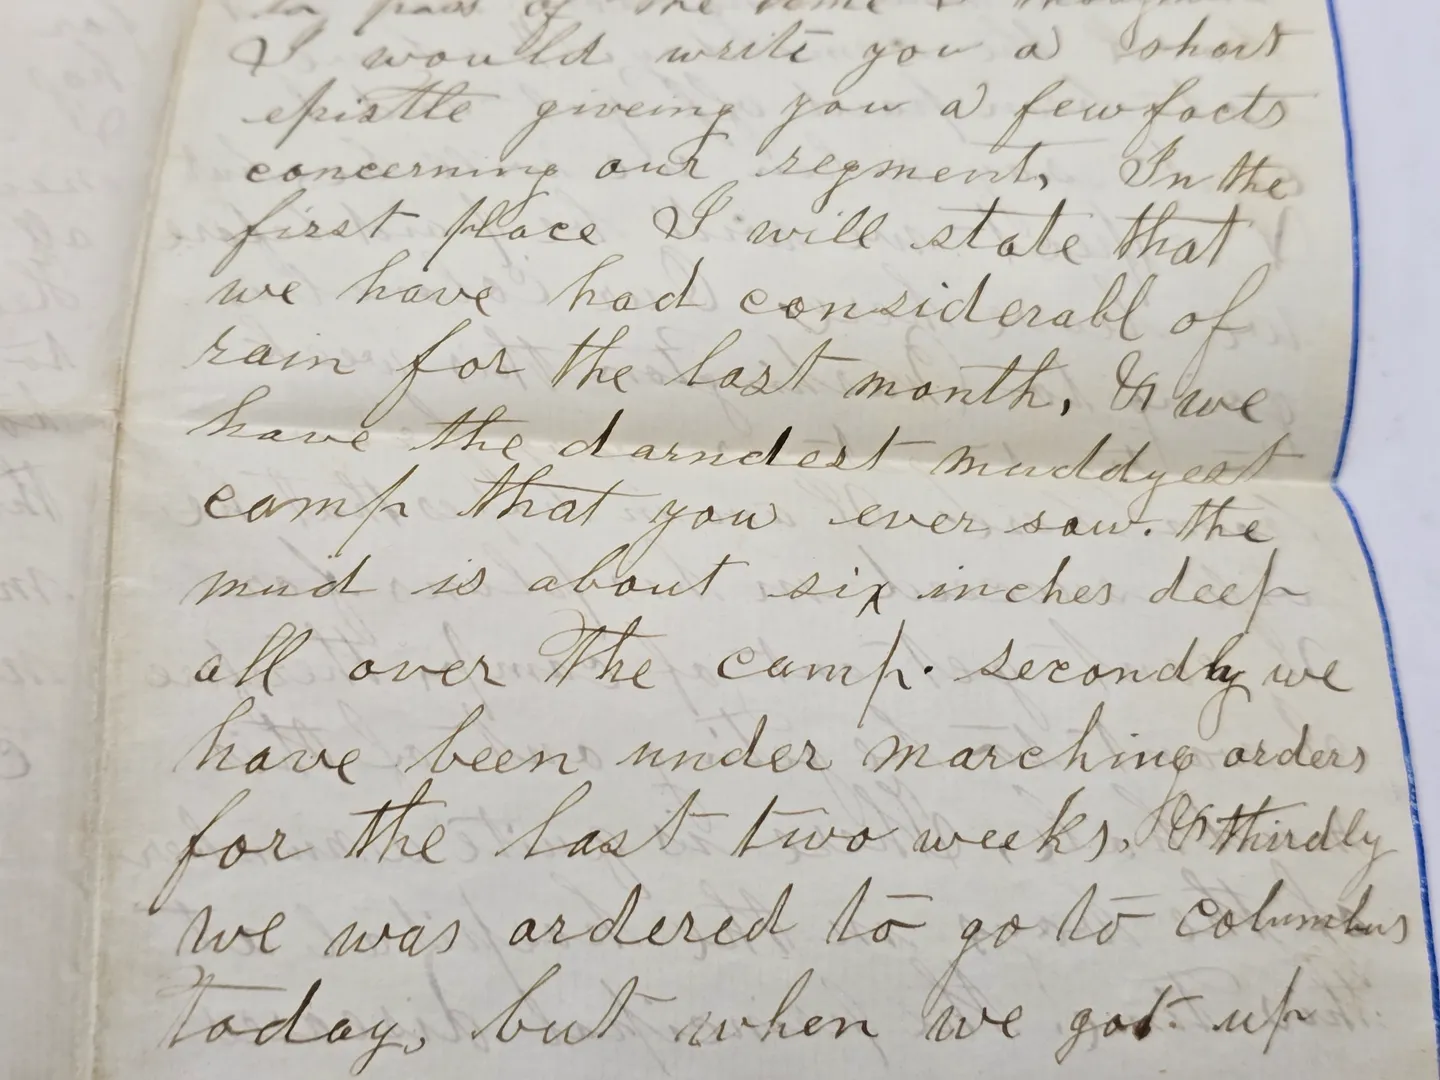 to pass of the time I thought
I would write you a short
epistle giveing you a few facts
concerning our regment, In the
first place I will state that
we have had considerabl of
rain for the last month, & we
have the darndest muddyest
camp that you ever saw. the
mud is about six inches deep
all over the camp. secondly we
have been under marching orders
for the last two weeks, & thirdly
we was ordered to go to Columbus
today, but when we got up